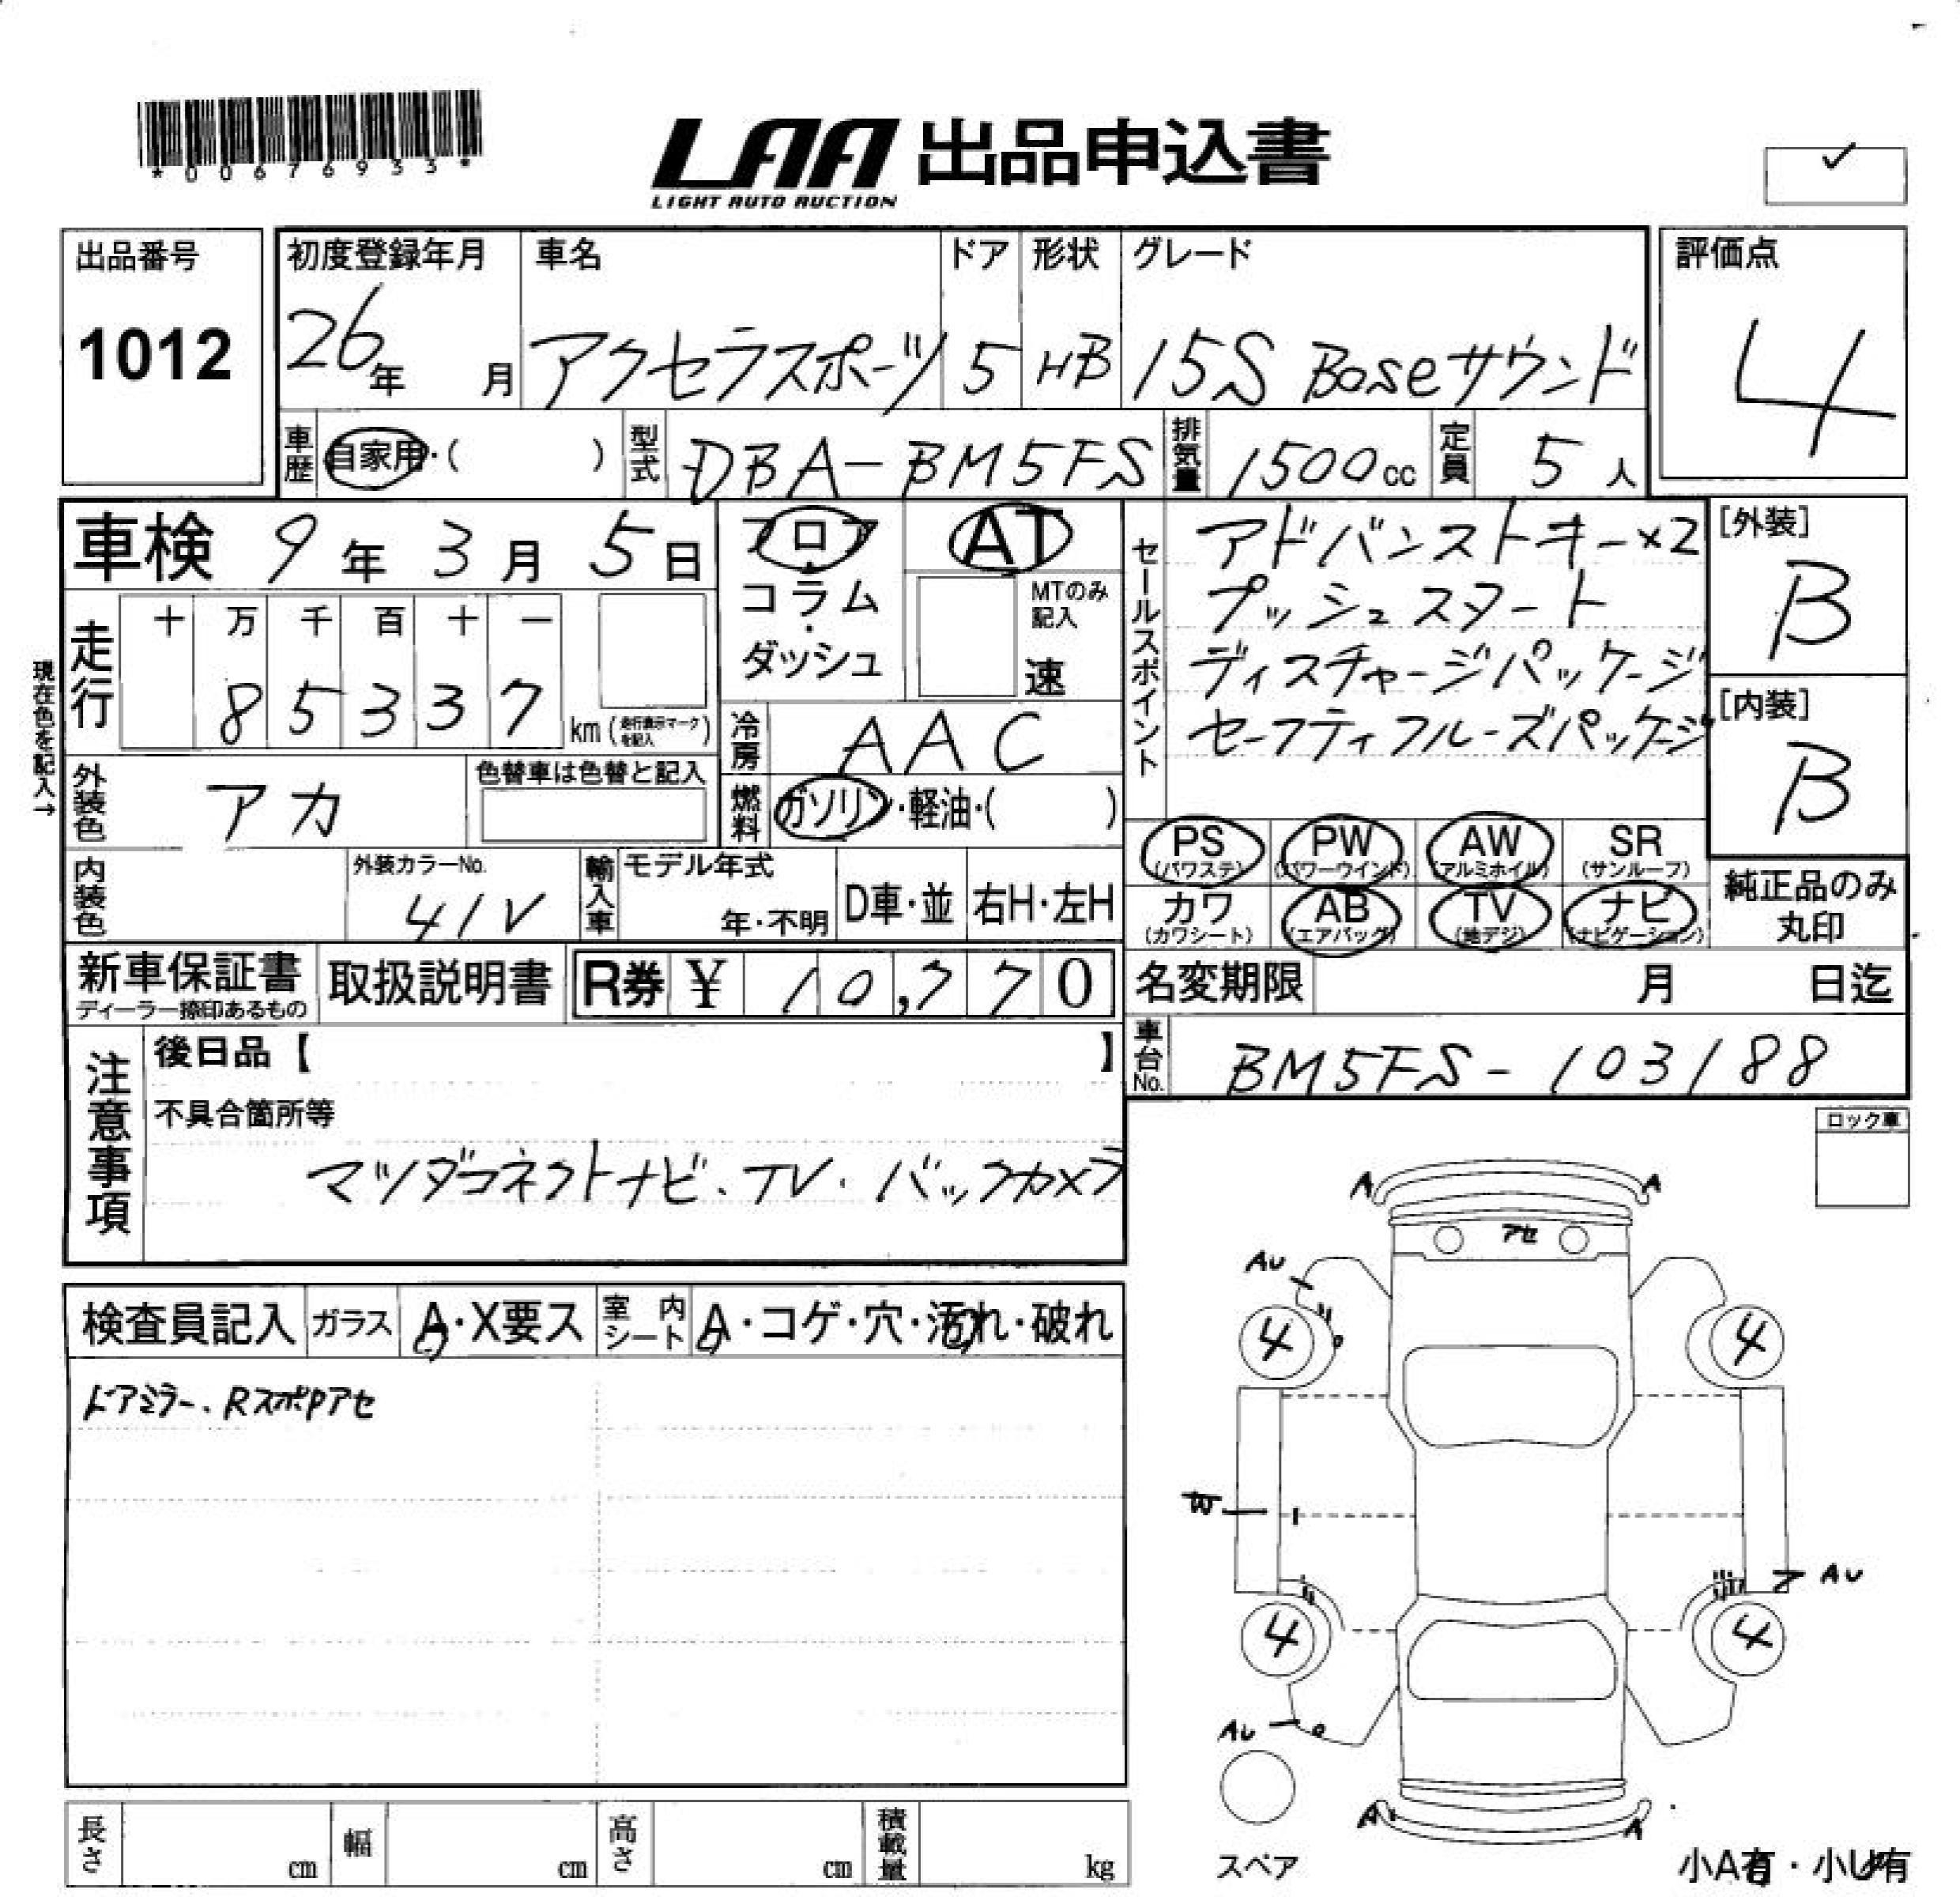 *00676933*
LAA 出品申込書
LIGHT AUTO AUCTION
✓
出品番号
1012
初度登録年月
26年 月
車名
アクセラスポーツ
ドア
5
形状
HB
グレード
15S Boseサウンド
評価点
4
車歴 自家用・( )
型式 DBA-BM5FS
排気量 1500cc
定員 5人
車検 9年 3月 5日
現在色を記入→
走行 十 万 千 百 十 一
8 5 3 3 7 km (走行表示マークを記入)
フロア・コラム・ダッシュ
AT
MTのみ記入
速
冷房 AAC
燃料 ガソリン・軽油・( )
外装色 アカ
色替車は色替と記入
内装色
外装カラーNo.
41V
輸入車 モデル年式
年・不明 D車・並 右H・左H
セールスポイント
アドバンストキー×2
プッシュスタート
ディスチャージパッケージ
セーフティクルーズパッケージ
[外装]
B
[内装]
B
PS (パワステ) PW (パワーウインド) AW (アルミホイル) SR (サンルーフ)
カワ (カワシート) AB (エアバッグ) TV (地デジ) ナビ (ナビゲーション)
純正品のみ
丸印
新車保証書
ディーラー捺印あるもの
取扱説明書
R券 ¥ 10,770
名変期限 月 日迄
車台No. BM5FS-103188
注意事項
後日品【 】
不具合箇所等
マツダコネクトナビ、TV・バックカメラ
ロック車
検査員記入 ガラス A・X要ス 室内シート A・コゲ・穴・汚れ・破れ
ドアミラー、RスポPアセ
A A
アセ
AU
4 4
W
AU
4 4
AU
A A
スペア
小A有・小U有
長さ cm 幅 cm 高さ cm 積載量 kg